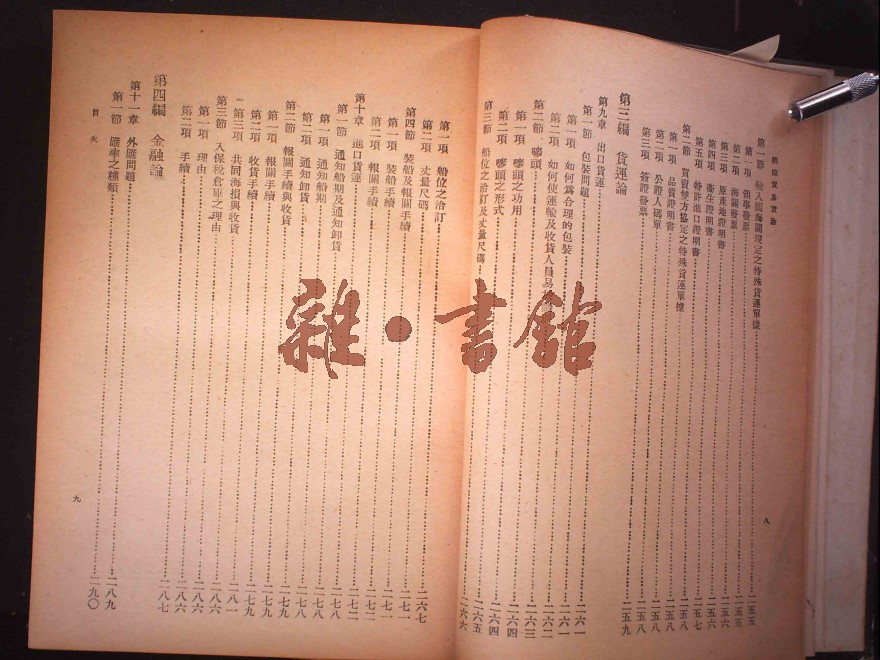 國際貿易實務
第一節 輸入國海關規定之特殊貨運單據……二五五
第一項 領事發票……二五五
第二項 海關發票……二五五
第三項 原產地證明書……二五六
第四項 衛生證明書……二五六
第五項 特許進口證明書……二五七
第二節 買賣雙方協定之特殊貨運單據……二五八
第一項 品質證明書……二五八
第二項 公證人碼單……二五八
第三項 簽證發票……二五九
第三編 貨運論
第九章 出口貨運……二六一
第一節 包裝問題……二六一
第一項 如何爲合理的包裝……二六一
第二項 如何使運輸及收貨人員易……二六二
第二節 嘜頭……二六三
第一項 嘜頭之功用……二六四
第二項 嘜頭之形式……二六四
第三節 船位之洽訂及丈量尺碼……二六五
八
第一項 船位之洽訂……二六六
第二項 丈量尺碼……二六七
第四節 裝船及報關手續……二七一
第一項 裝船手續……二七一
第二項 報關手續……二七二
第十章 進口貨運……二七二
第一節 通知船期及通知卸貨……二七八
第一項 通知船期……二七八
第二項 通知卸貨……二七八
第二節 報關手續與收貨……二七九
第一項 報關手續……二七九
第二項 收貨手續……二七九
第三項 共同海損與收貨……二八一
第三節 入保稅倉庫之理由……二八六
第一項 理由……二八六
第二項 手續……二八六
第四編 金融論……二八七
第十一章 外匯問題……二八九
第一節 匯率之種類……二九〇
目 次
九
雜·書館